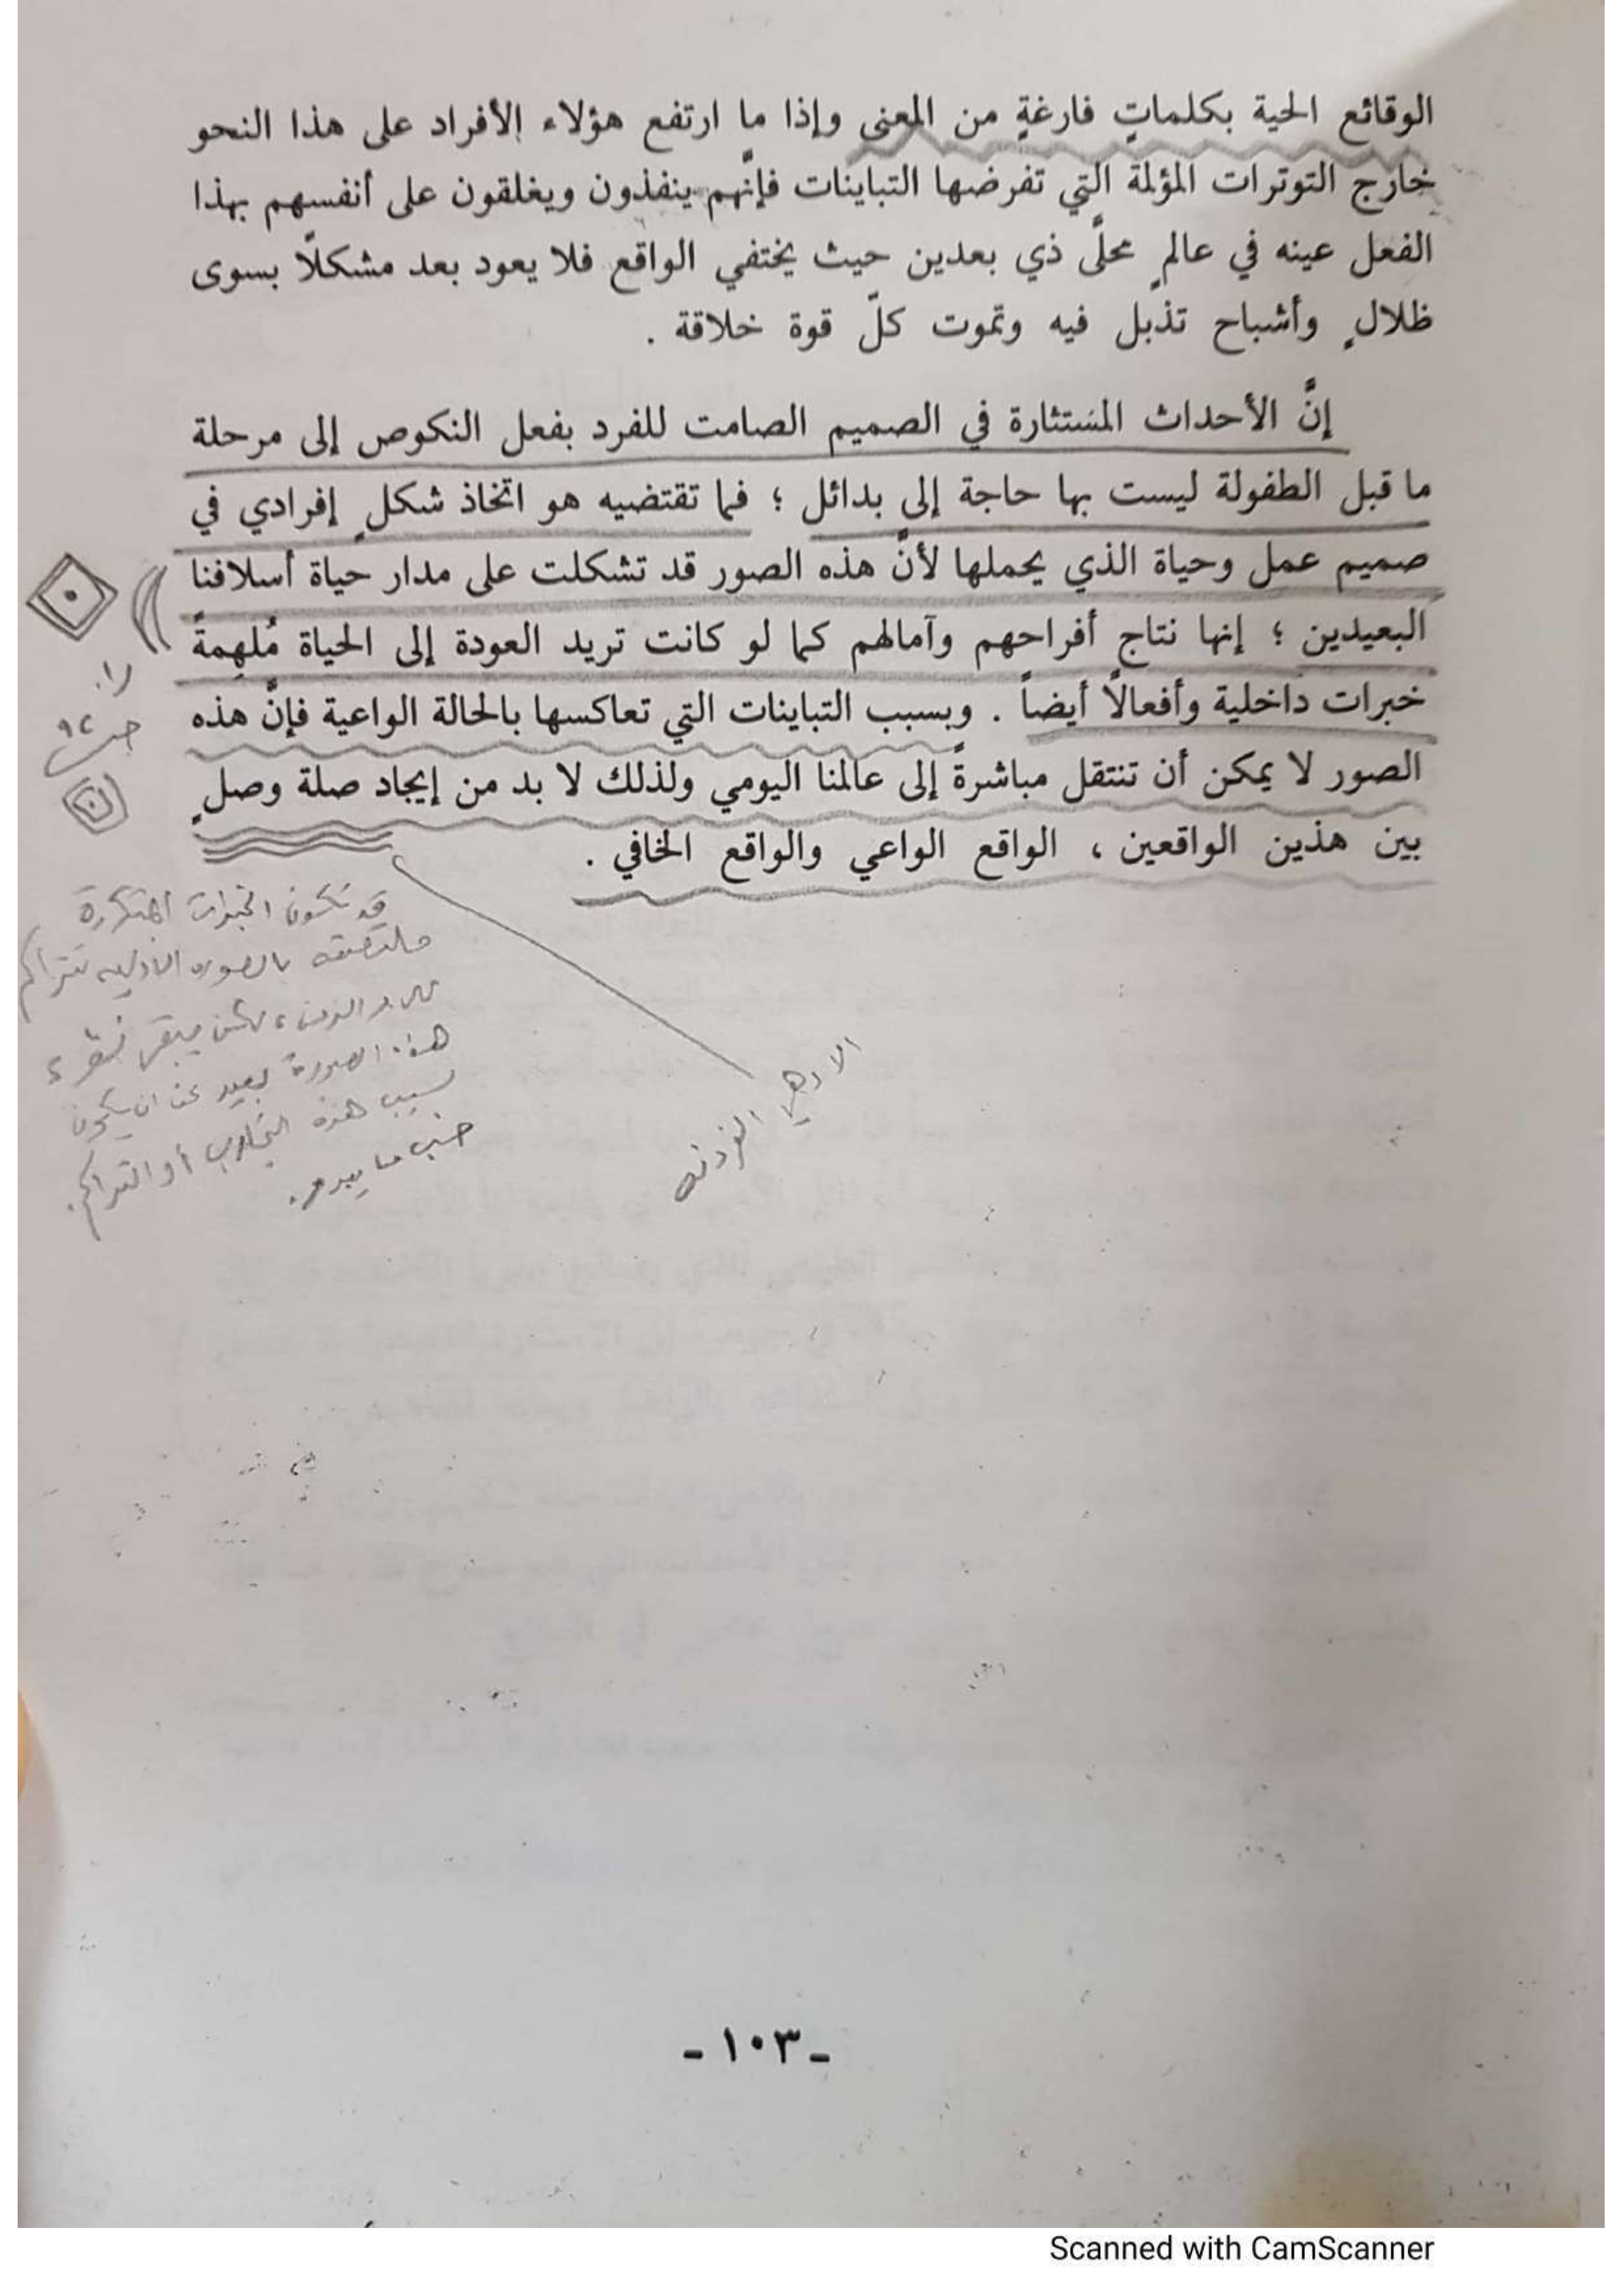 الوقائع الحية بكلماتٍ فارغةٍ من المعنى وإذا ما ارتفع هؤلاء الأفراد على هذا النحو
خارج التوترات المؤلمة التي تفرضها التباينات فإنَّهم ينفذون ويغلقون على أنفسهم بهذا
الفعل عينه في عالمٍ محلَّى ذي بعدين حيث يختفي الواقع فلا يعود بعد مشكلاً بسوى
ظلالٍ وأشباح تذبل فيه وتموت كلّ قوة خلاقة .
إنَّ الأحداث المسَتثارة في الصميم الصامت للفرد بفعل النكوص إلى مرحلة
ما قبل الطفولة ليست بها حاجة إلى بدائل ؛ فما تقتضيه هو اتخاذ شكلٍ إفرادي في
صميم عمل وحياة الذي يحملها لأنَّ هذه الصور قد تشكلت على مدار حياة أسلافنا
البعيدين ؛ إنها نتاج أفراحهم وآمالهم كما لو كانت تريد العودة إلى الحياة مُلهِمةً
خبرات داخلية وأفعالاً أيضاً . وبسبب التباينات التي تعاكسها بالحالة الواعية فإنَّ هذه
الصور لا يمكن أن تنتقل مباشرةً إلى عالمنا اليومي ولذلك لا بد من إيجاد صلة وصلٍ
بين هذين الواقعين ، الواقع الواعي والواقع الخافي .
قد تكون الخبرات المتكررة
بالصورة الاولية تتراكم
الزمن ،
هذه الصورة بعيد عن ان يكون
بسبب هذه التجارب أو التراكم
حسب ما يبدو.
- ١٠٣ -
Scanned with CamScanner